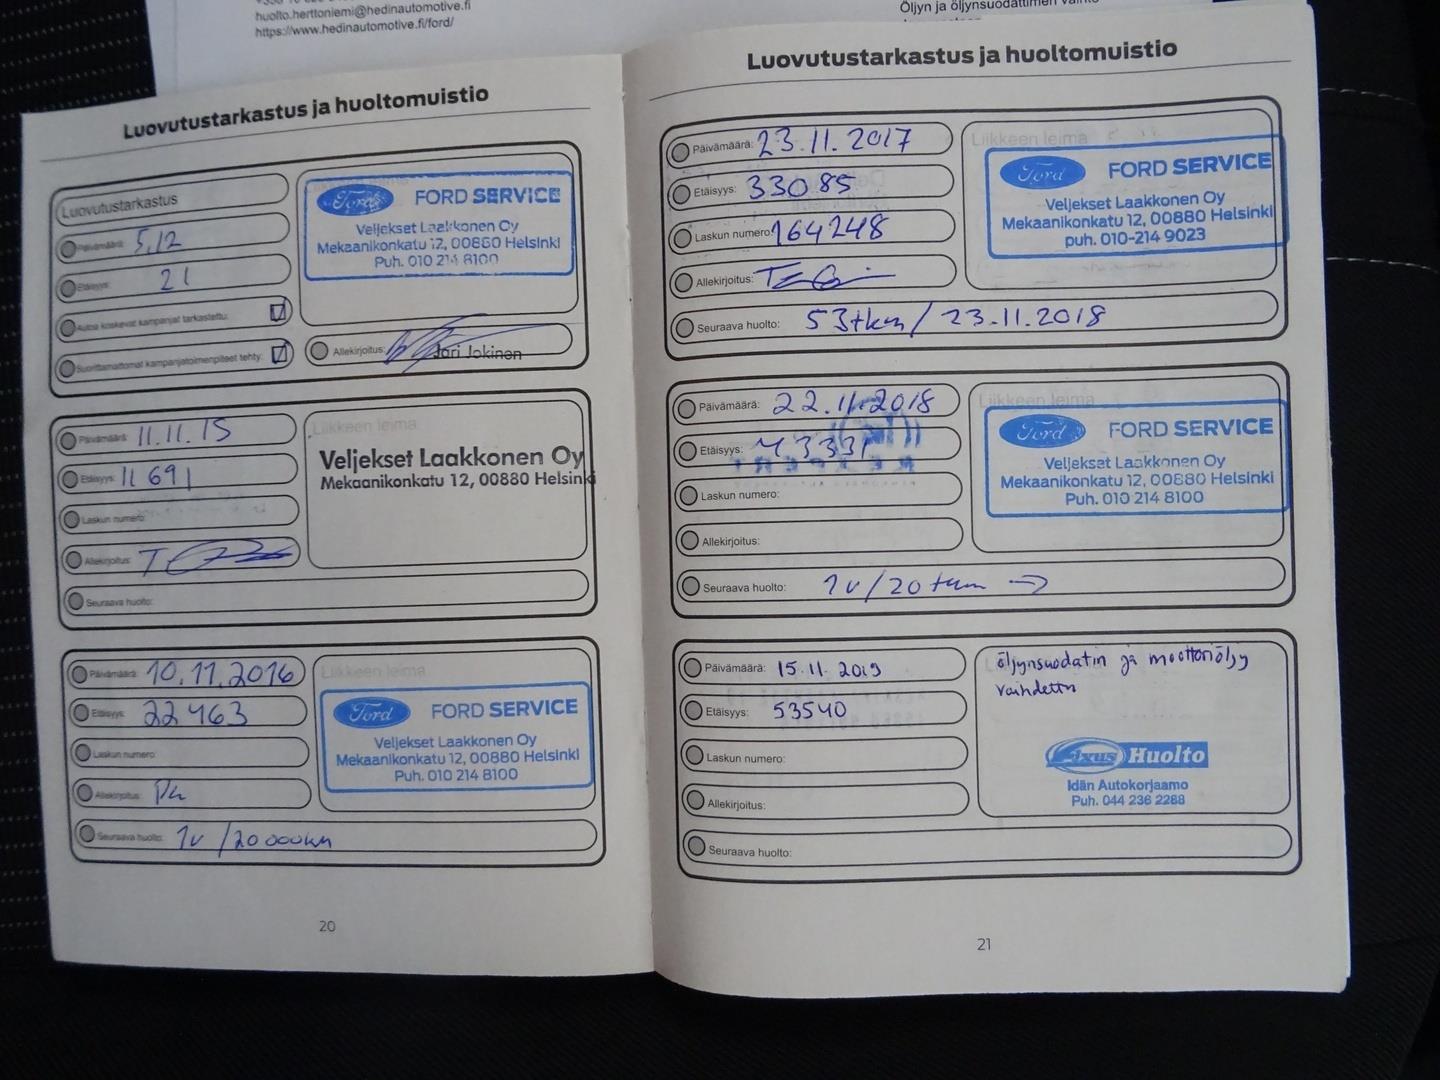 huolto.herttoniemi@hedinautomotive.fi
https://www.hedinautomotive.fi/ford/
Öljyn ja öljynsuodattimen vaihto
Luovutustarkastus ja huoltomuistio
Luovutustarkastus
Päivämäärä: 5.12
Etäisyys: 21
Autoa koskevat kampanjat tarkastettu:
Suorittamattomat kampanjatoimenpiteet tehty:
Liikkeen leima
Ford FORD SERVICE
Veljekset Laakkonen Oy
Mekaanikonkatu 12, 00880 Helsinki
Puh. 010 214 8100
Allekirjoitus: Jari Jokinen
Päivämäärä: 11.11.15
Etäisyys: 11691
Laskun numero:
Allekirjoitus:
Seuraava huolto:
Liikkeen leima
Veljekset Laakkonen Oy
Mekaanikonkatu 12, 00880 Helsinki
Päivämäärä: 10.11.2016
Etäisyys: 22463
Laskun numero:
Allekirjoitus:
Seuraava huolto: 1v/20000km
Liikkeen leima
Ford FORD SERVICE
Veljekset Laakkonen Oy
Mekaanikonkatu 12, 00880 Helsinki
Puh. 010 214 8100
20
Luovutustarkastus ja huoltomuistio
Päivämäärä: 23.11.2017
Etäisyys: 33085
Laskun numero: 164248
Allekirjoitus:
Seuraava huolto: 53tkm/23.11.2018
Liikkeen leima
Ford FORD SERVICE
Veljekset Laakkonen Oy
Mekaanikonkatu 12, 00880 Helsinki
puh. 010-214 9023
Päivämäärä: 22.11.2018
Etäisyys: 43331
Laskun numero:
Allekirjoitus:
Seuraava huolto: 1v/20tkm →
Liikkeen leima
Ford FORD SERVICE
Veljekset Laakkonen Oy
Mekaanikonkatu 12, 00880 Helsinki
Puh. 010 214 8100
Päivämäärä: 15.11.2019
Etäisyys: 53540
Laskun numero:
Allekirjoitus:
Seuraava huolto:
öljynsuodatin ja moottoriöljy
vaihdettu
Fixus Huolto
Idän Autokorjaamo
Puh. 044 236 2288
21